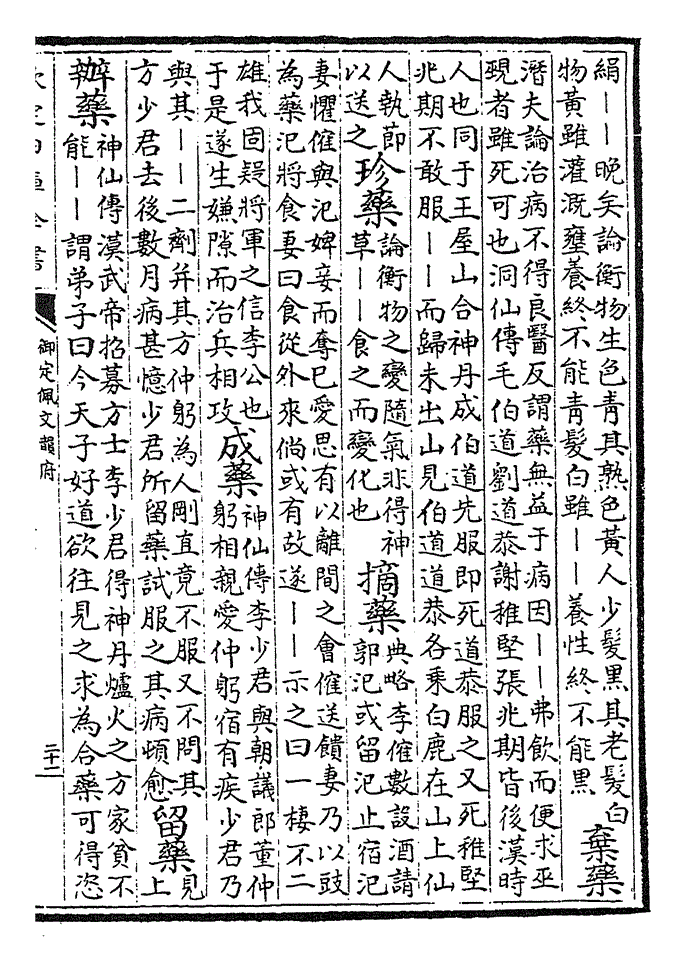 絹——晚矣論衡物生色青其熟色黃人少髮黑其老髮白
物黃雖灌溉壅養終不能青髮白雖——養性終不能黑
棄藥
潛夫論治病不得良醫反謂藥無益于病因——弗飲而便求巫
覡者雖死可也洞仙傳毛伯道劉道恭謝稚堅張兆期皆後漢時
人也同于王屋山合神丹成伯道先服即死道恭服之又死稚堅
兆期不敢服——而歸未出山見伯道道恭各乘白鹿在山上仙
人執節
以送之
珍藥
論衡物之變隨氣非得神
草——食之而變化也
摘藥
典略李傕數設酒請
郭汜或留汜止宿汜
妻懼傕與汜婢妾而奪已愛思有以離間之會傕送饋妻乃以豉
為藥汜將食妻曰食從外來倘或有故遂——示之曰一棲不二
雄我固疑將軍之信李公也
于是遂生嫌隙而治兵相攻
成藥
神仙傳李少君與朝議郎董仲
躬相親愛仲躬宿有疾少君乃
與其——二劑并其方仲躬為人剛直竟不服又不問其
方少君去後數月病甚憶少君所留藥試服之其病頓愈
留藥
見
上
辦藥
神仙傳漢武帝招募方士李少君得神丹爐火之方家貧不
能——謂弟子曰今天子好道欲往見之求為合藥可得恣
欽定四庫全書
御定佩文韻府
二十二